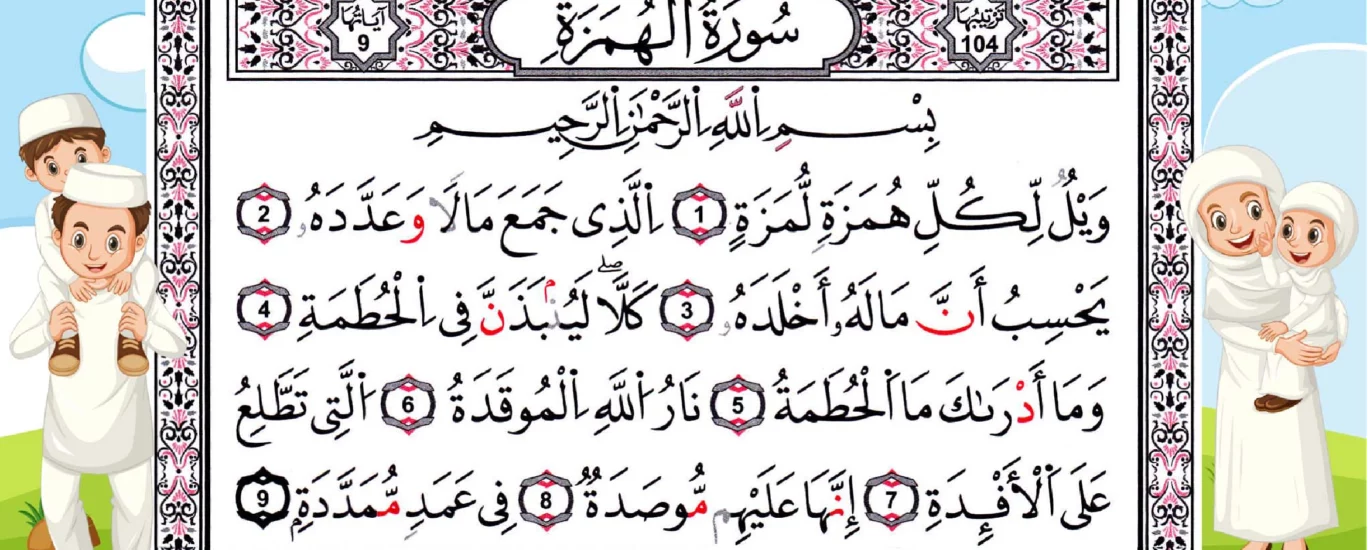 آيَاتُهَا 9
سُورَةُ الْهُمَزَةِ
تَرْتِيبُهَا 104
بِسْمِ اِللَّهِ اِلرَّحْمَٰنِ اِلرَّحِيمِ
وَيْلٌ لِّكُلِّ هُمَزَةٍ لُّمَزَةٍ 1 اِلَّذِى جَمَعَ مَالًا وَعَدَّدَهُۥ 2
يَحْسِبُ أَنَّ مَالَهُۥ أَخْلَدَهُۥ 3 كَلَّاۖ لَيُنۢبَذَنَّ فِى اِلْحُطَمَةِ 4
وَمَا أَدْرَىٰكَ مَا اَلْحُطَمَةُ 5 نَارُ اُللَّهِ اِلْمُوقَدَةُ 6 اَلَّتِى تَطَّلِعُ
عَلَى اَلْأَفْـِٔدَةِ 7 إِنَّهَا عَلَيْهِم مُّوصَدَةٌ 8 فِى عَمَدٍ مُّمَدَّدَةٍۭ 9